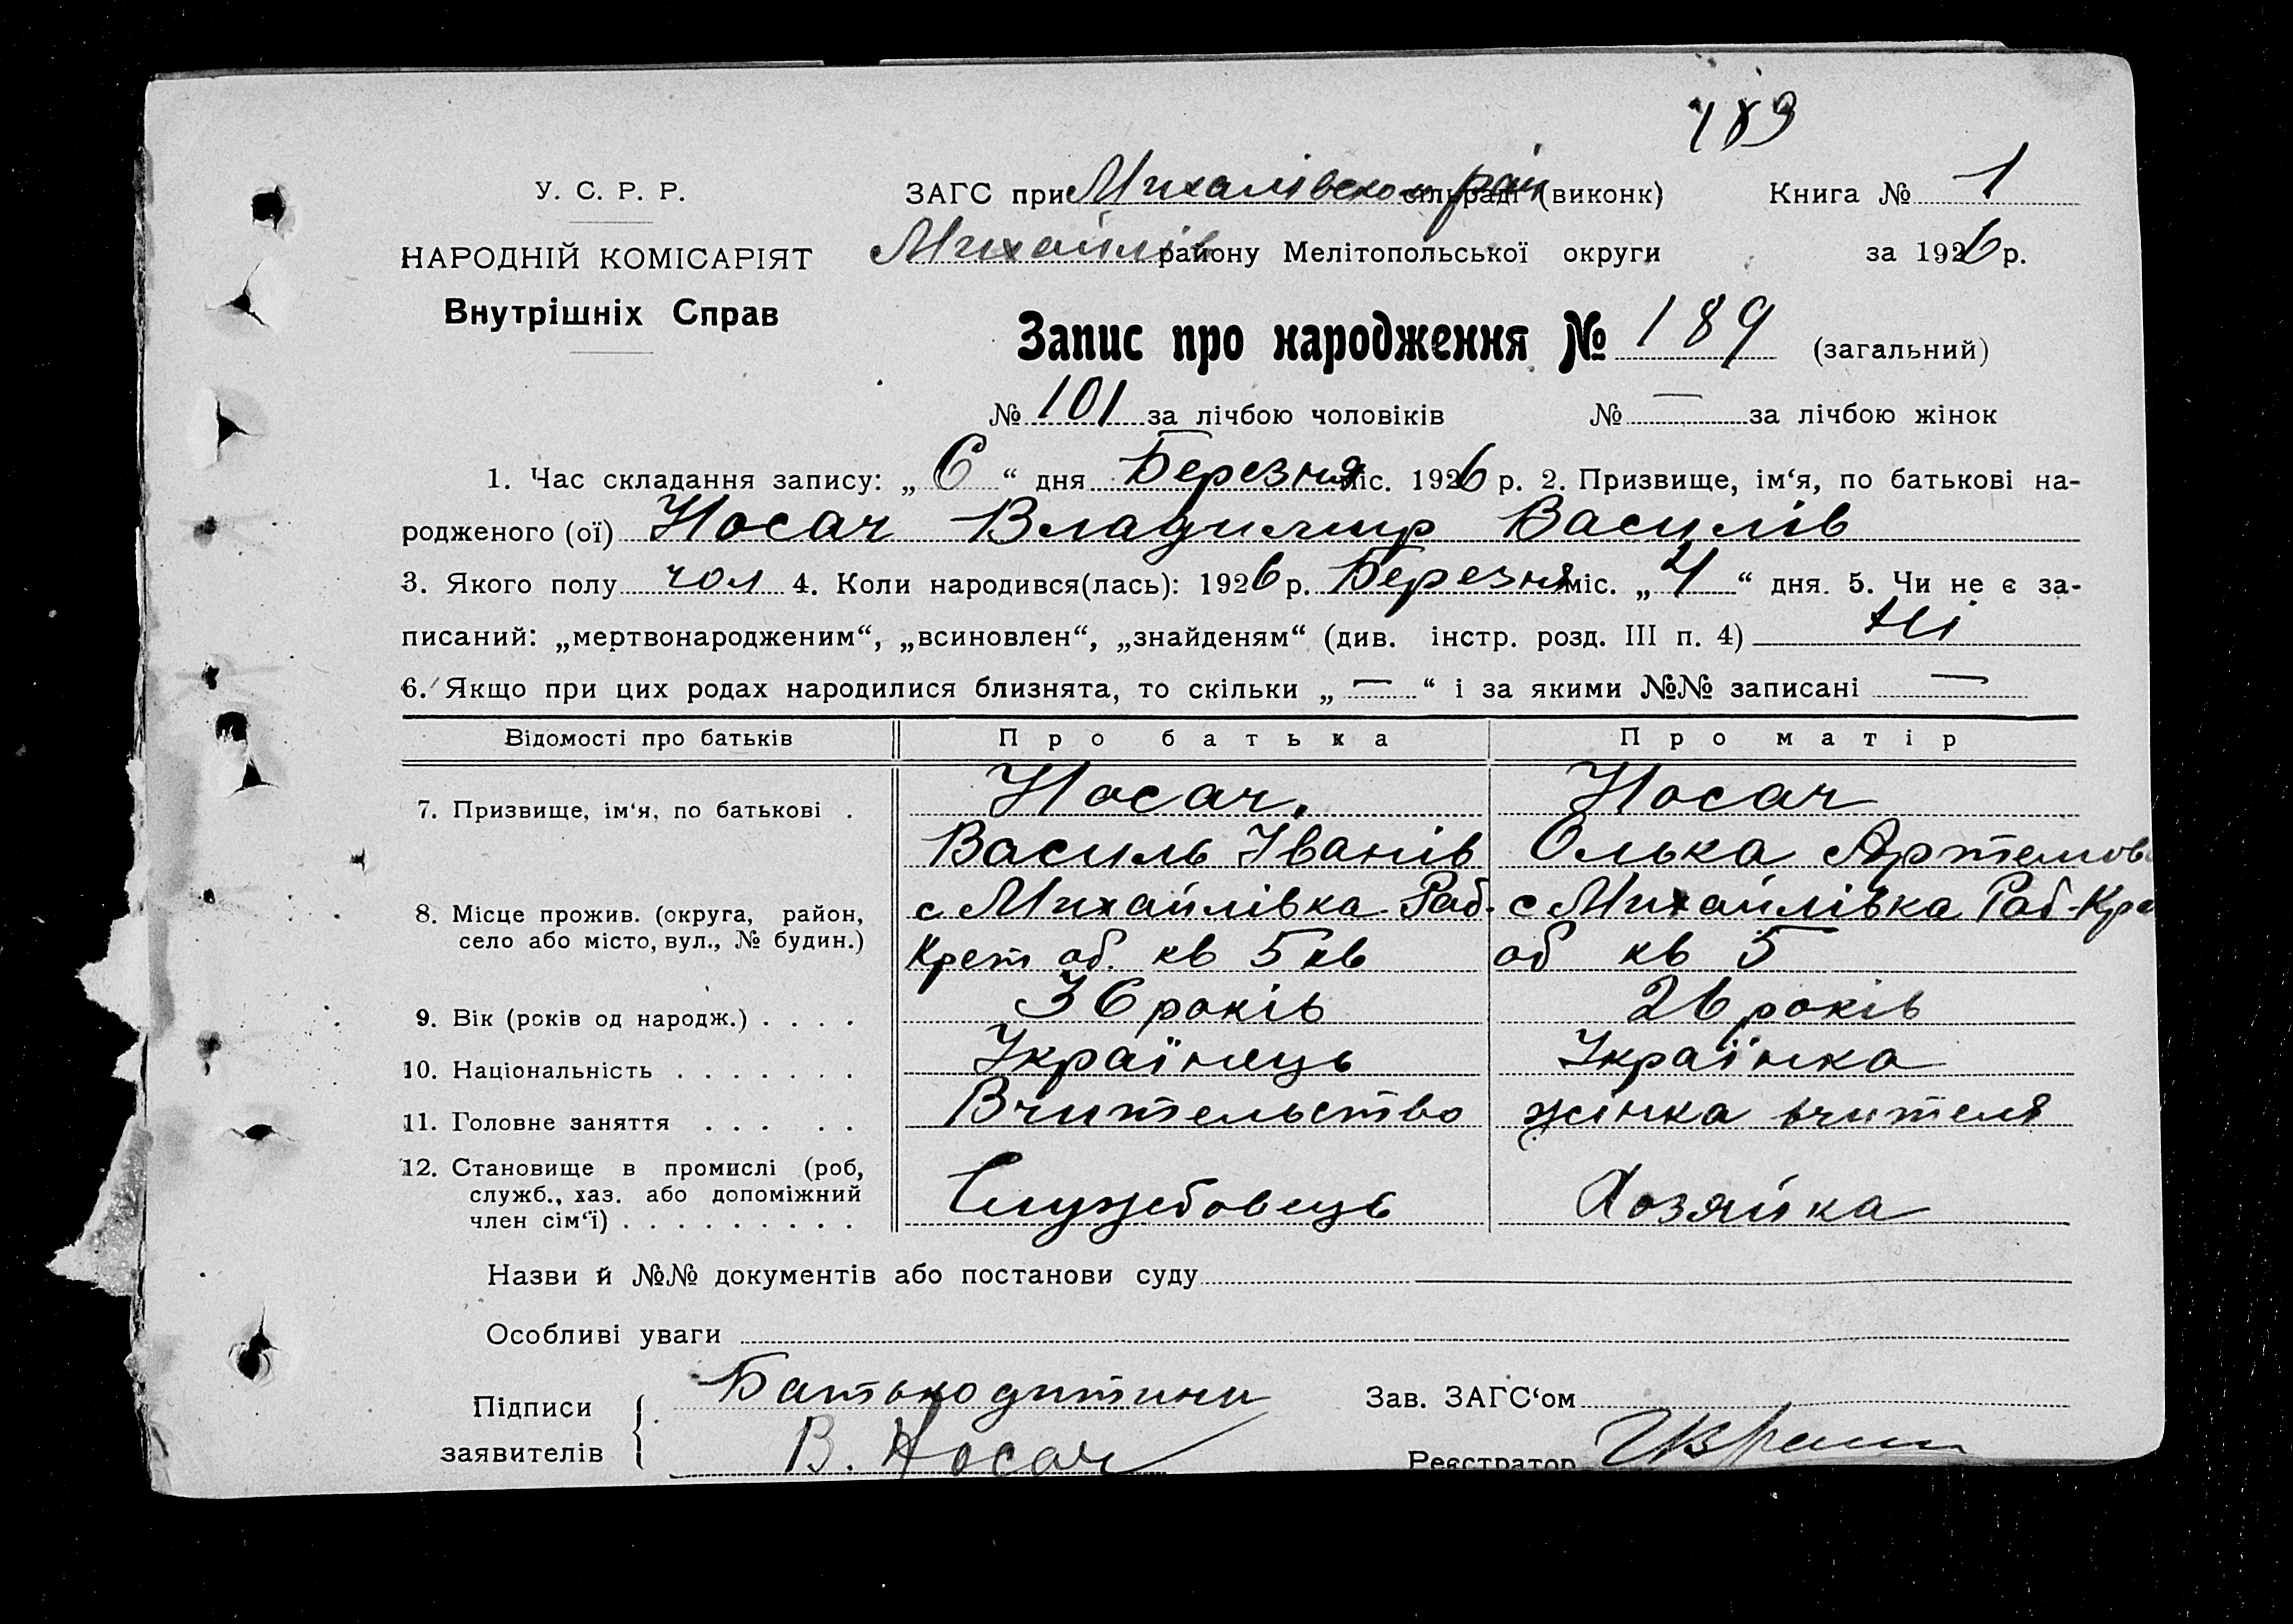 189
У. С. Р. Р.
ЗАГС при Михалівском рай сільраді (виконк) Книга № 1
НАРОДНІЙ КОМІСАРІЯТ
Михайлів району Мелітопольської округи за 1926 р.
Внутрішніх Справ
Запис про народження № 189 (загальний)
№ 101 за лічбою чоловіків № — за лічбою жінок
1. Час складання запису: „ 6 “ дня Березня міс. 1926 р. 2. Призвище, ім‘я, по батькові на-
родженого (ої) Носач Владимир Василів
3. Якого полу чол 4. Коли народився(лась): 1926 р. Березня міс. „ 4 “ дня. 5. Чи не є за-
писаний: „мертвонародженим“, „всиновлен“, „знайденям“ (див. інстр. розд. III п. 4) Ні
6. Якщо при цих родах народилися близнята, то скільки „ — “ і за якими №№ записані —
Відомості про батьків Про батька Про матір
7. Призвище, ім‘я, по батькові . Носач, Носач
Василь Іванів Олька Артемов
8. Місце прожив. (округа, район, с Михайлівка Раб- с Михайлівка Раб-Кре
село або місто, вул., № будин.) Крест об. кв 5 кв об кв 5
9. Вік (років од народж.) . . . . 36 років 26 років
10. Національність . . . . . . . Українець Українка
11. Головне заняття . . . . . Вчительство жінка вчителя
12. Становище в промислі (роб,
служб., хаз. або допоміжний Службовець Хозяйка
член сім‘ї) . . . . . . . . .
Назви й №№ документів або постанови суду
Особливі уваги
Підписи Батько дитини Зав. ЗАГС‘ом
заявителів В. Носач Реєстратор